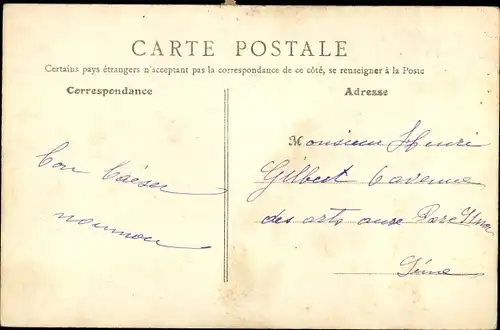 CARTE POSTALE
Certains pays étrangers n'acceptant pas la correspondance de ce côté, se renseigner à la Poste
Correspondance
Adresse
bon baiser
Monsieur Henri
Gilbert 6 avenue
des arts
Seine